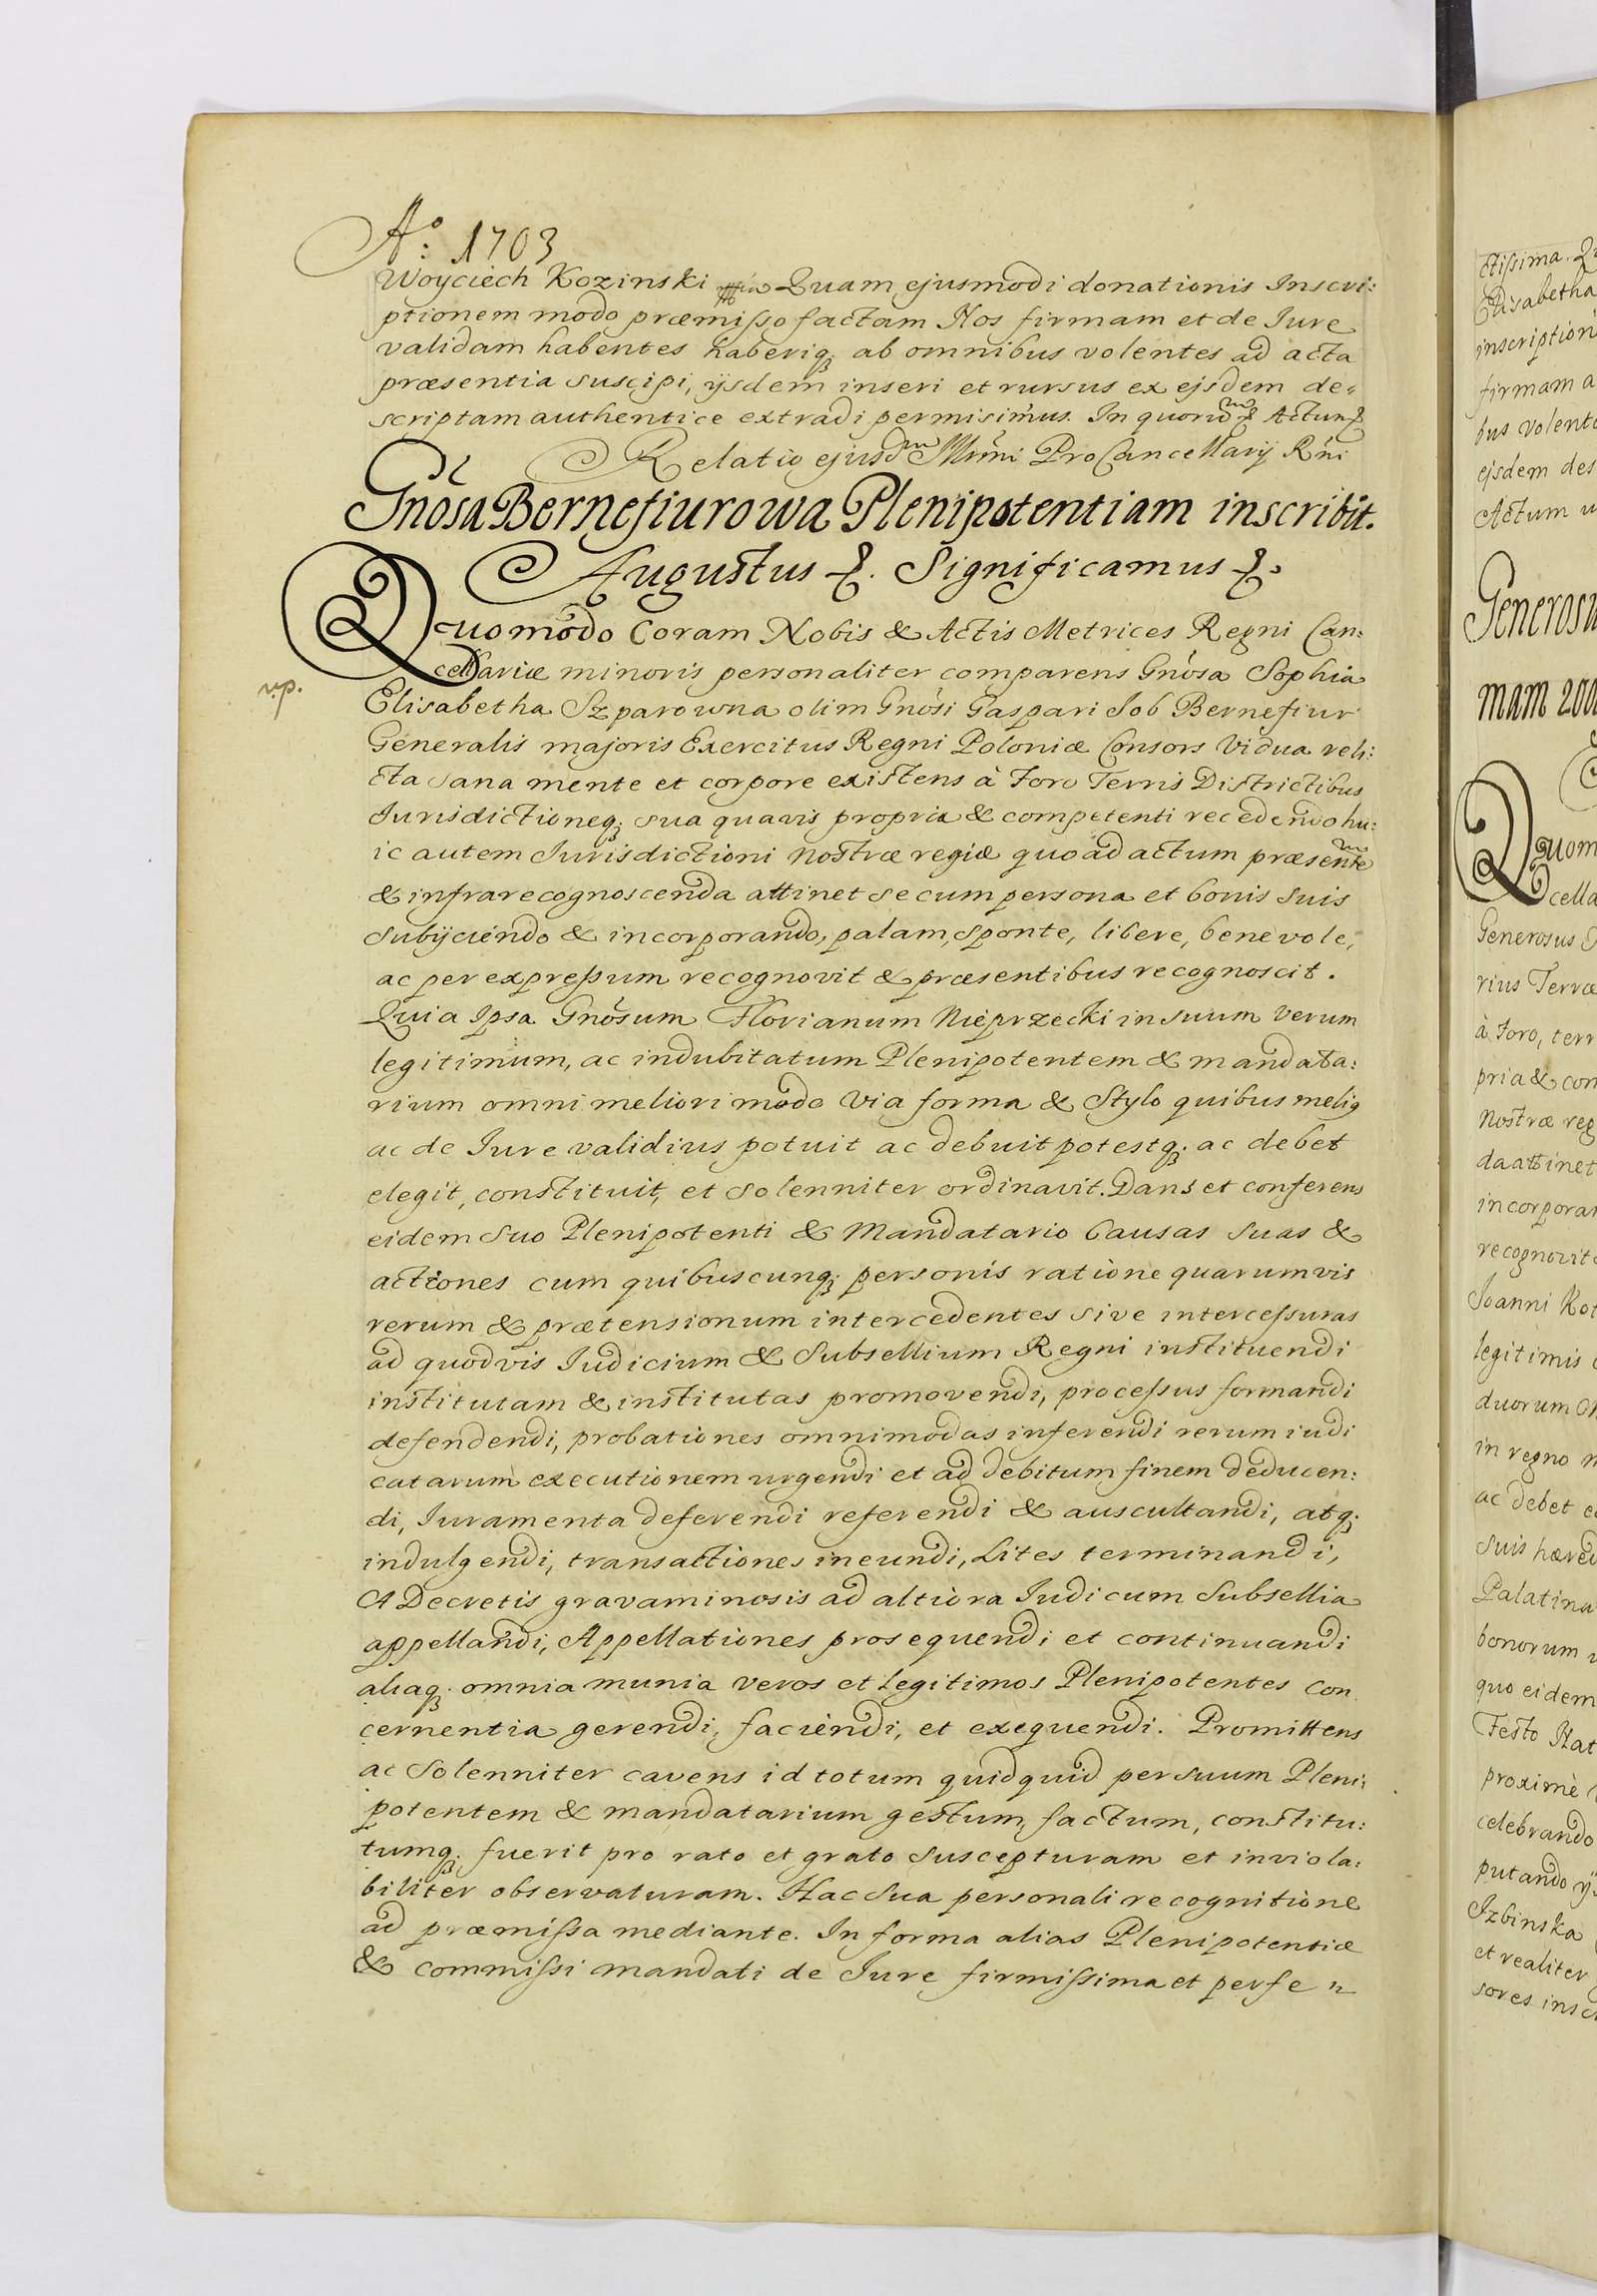 Aº: 1703
Woyciech Kozinski Quam ejusmodi donationis Inscri:
ptionem modo præmisso factam Nos firmam et de Iure
validam habentes haberiq; ab omnibus volentes ad acta
præsentia suscipi, ijsdem inseri et rursus ex ejsdem de=
scriptam authentice extradi permisimus. In quoru m & Actum &
Relatio ejusdm Illmi ProCancellarij Rni
Gnosa Bernefiurowa Plenipotentiam inscribit.
Augustus &. Significamus &.
Quomodo Coram Nobis & Actis Metrices Regni Can:
cellariæ minoris personaliter comparens Gnosa Sophia
v.p.
Elisabetha Szparowna olim Gnosi Gaspari Job Bernefiur
Generalis majoris Exercitus Regni Poloniæ Consors Vidua reli:
cta sana mente et corpore existens à Foro Terris Districtibus
Jurisdictioneq; sua quavis propria & competenti recedendo hu:
ic autem Jurisdictioni nostræ regiæ quo ad actum præsentem
& infrarecognoscenda attinet se cum persona et bonis suis
subijciendo & incorporando, palam, sponte, libere, benevole,
ac per expressum recognovit & præsentibus recognoscit.
Quia Ipsa Gnosum Florianum Nieprzecki in suum verum
legitimum, ac indubitatum Plenipotentem & mandata:
rium omni meliori modo via forma & Stylo quibus meliq
ac de Iure validius potuit ac debuit potestq; ac debet
elegit, constituit, et solenniter ordinavit. Dans et conferens
eidem suo Plenipotenti & Mandatario Causas suas &
actiones cum quibuscunq; personis ratione quarumvis
rerum & prætensionum intercedentes sive intercessuras
ad quodvis Iudicium & Subsellium Regni instituendi
institutam & institutas promovendi, processus formandi
defendendi, probationes omnimodas inferendi rerum iudi
catarum executionem urgendi et ad debitum finem deducen:
di, Iuramenta deferendi referendi & auscultandi, atq;
indulgendi, transactiones ineundi, Lites terminandi,
A Decretis gravaminosis ad altiora Iudicum Subsellia
appellandi, Appellationes prosequendi et continuandi
aliaq; omnia munia veros et legitimos Plenipotentes con
cernentia gerendi, faciendi, et exequendi. Promittens
ac Solenniter cavens id totum quidquid per suum Pleni:
potentem & mandatarium gestum, factum, constitu:
tumq; fuerit pro rato et grato suscepturam et inviola:
biliter observaturam. Hac sua personali recognitione
ad præmissa mediante. In forma alias Plenipotentiæ
& commissi mandati de Iure firmissima et perfe=
ctissima. Qu
Elisabetha
inscription
firmam a
bus volent
ejsdem des
Actum u
Generosu
mam 200
Quom
cella
Generosus
rius Terræ
à Foro, terr
pria & con
nostræ reg
da attinet
incorporan
recognovit
Ioanni Kot
legitimis
duorum
in regno
ac debet e
suis hæred
Palatina
bonorum
quo eidem
Festo Nat
proximè
celebrando
putando ijs
Izbinska
et realiter
sores insc